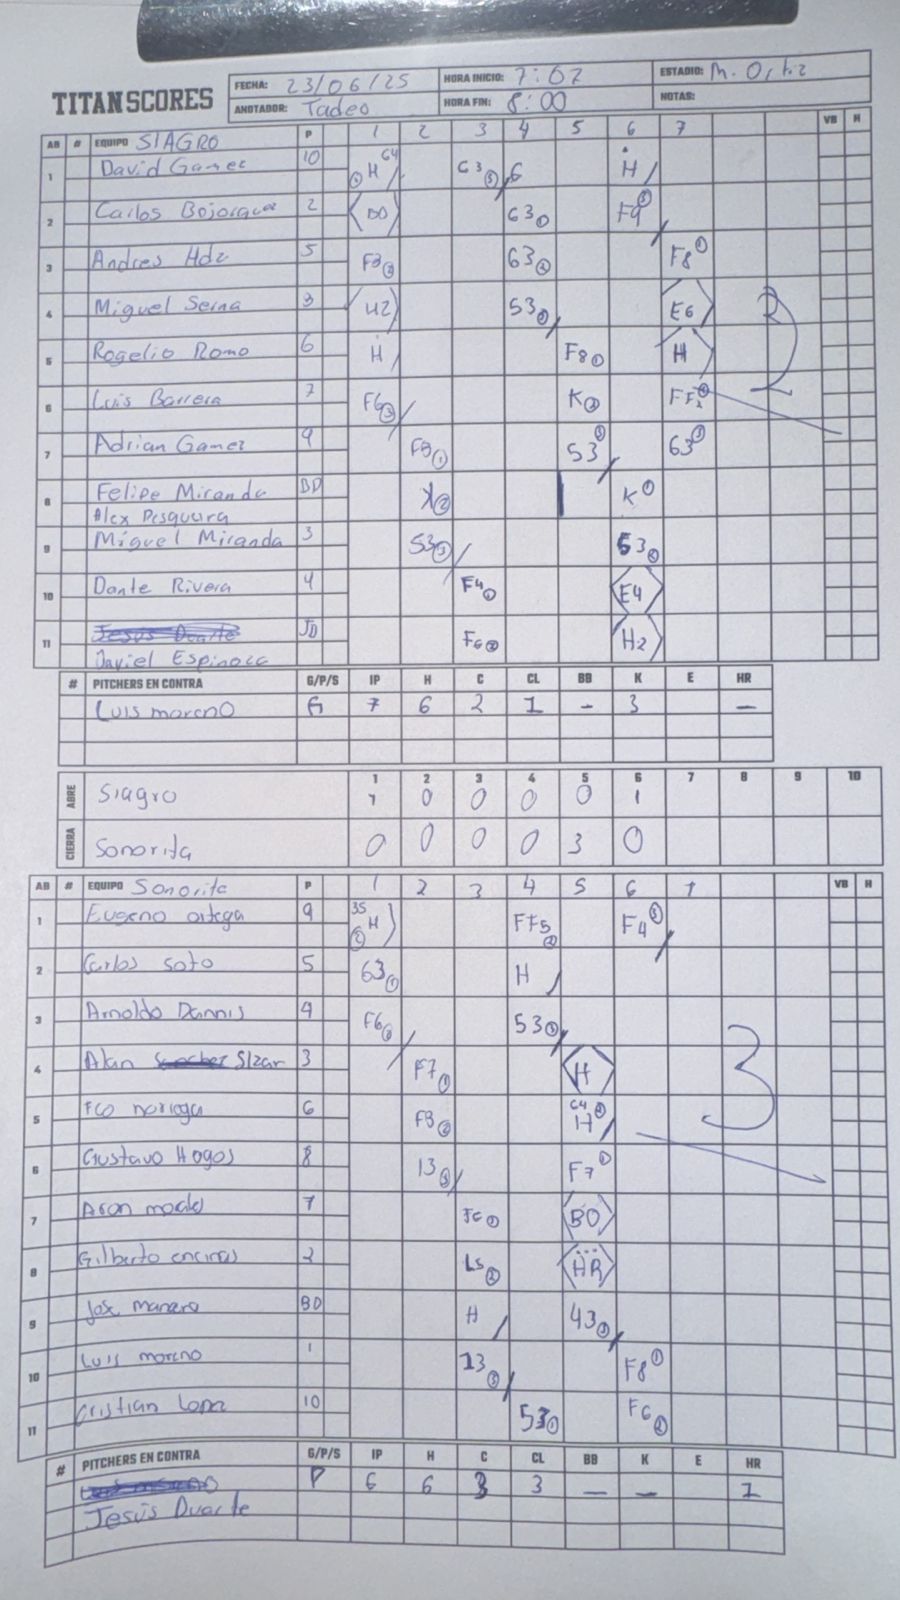 TITAN SCORES
FECHA: 23/06/25 HORA INICIO: 7:07 ESTADIO: M. Ortiz
ANOTADOR: Tadeo HORA FIN: 8:00 NOTAS:
AB # EQUIPO SIAGRO P 1 2 3 4 5 6 7 VB H
1 David Gamez 10 H 64 63③ 6 H
2 Carlos Bojorquez 2 BO 63① F9③
3 Andres Hdz 5 F3② 63② F8①
4 Miguel Serna 3 H2 53③ E6
5 Rogelio Romo 6 H F8① H
6 Luis Barrera 7 F6③ K② FF2②
7 Adrian Gamez 9 F3① 53③ 63③
8 Felipe Miranda BD K② K①
Alex Pesqueira
9 Miguel Miranda 3 53③ 53②
10 Dante Rivera 4 F4① E4
11 Jesús Duarte JD F6② H2
Daviel Espinoza
# PITCHERS EN CONTRA G/P/S IP H C CL BB K E HR
Luis moreno G 7 6 2 1 - 3 -
1 2 3 4 5 6 7 8 9 10
ABRE Siagro 1 0 0 0 0 1
CIERRA Sonorita 0 0 0 0 3 0
AB # EQUIPO Sonorita P 1 2 3 4 5 6 7 VB H
1 Eugeno ortega 9 35 H FF5② F4③
2 Carlos soto 5 63① H
3 Arnoldo Dannis 4 F6③ 53③
4 Alan Sizar 3 F7① H
5 Fco noriega 6 F3② 64② H
6 Gustavo Hogos 8 13③ F7①
7 Aron 7 F6① BO
8 Gilberto encinas 2 L5② HR
9 Jose manero BD H 43③
10 Luis moreno 1 13③ F8①
11 Cristian Lopez 10 53① F6②
3
# PITCHERS EN CONTRA G/P/S IP H C CL BB K E HR
P 6 6 3 3 - - 1
Jesús Duarte